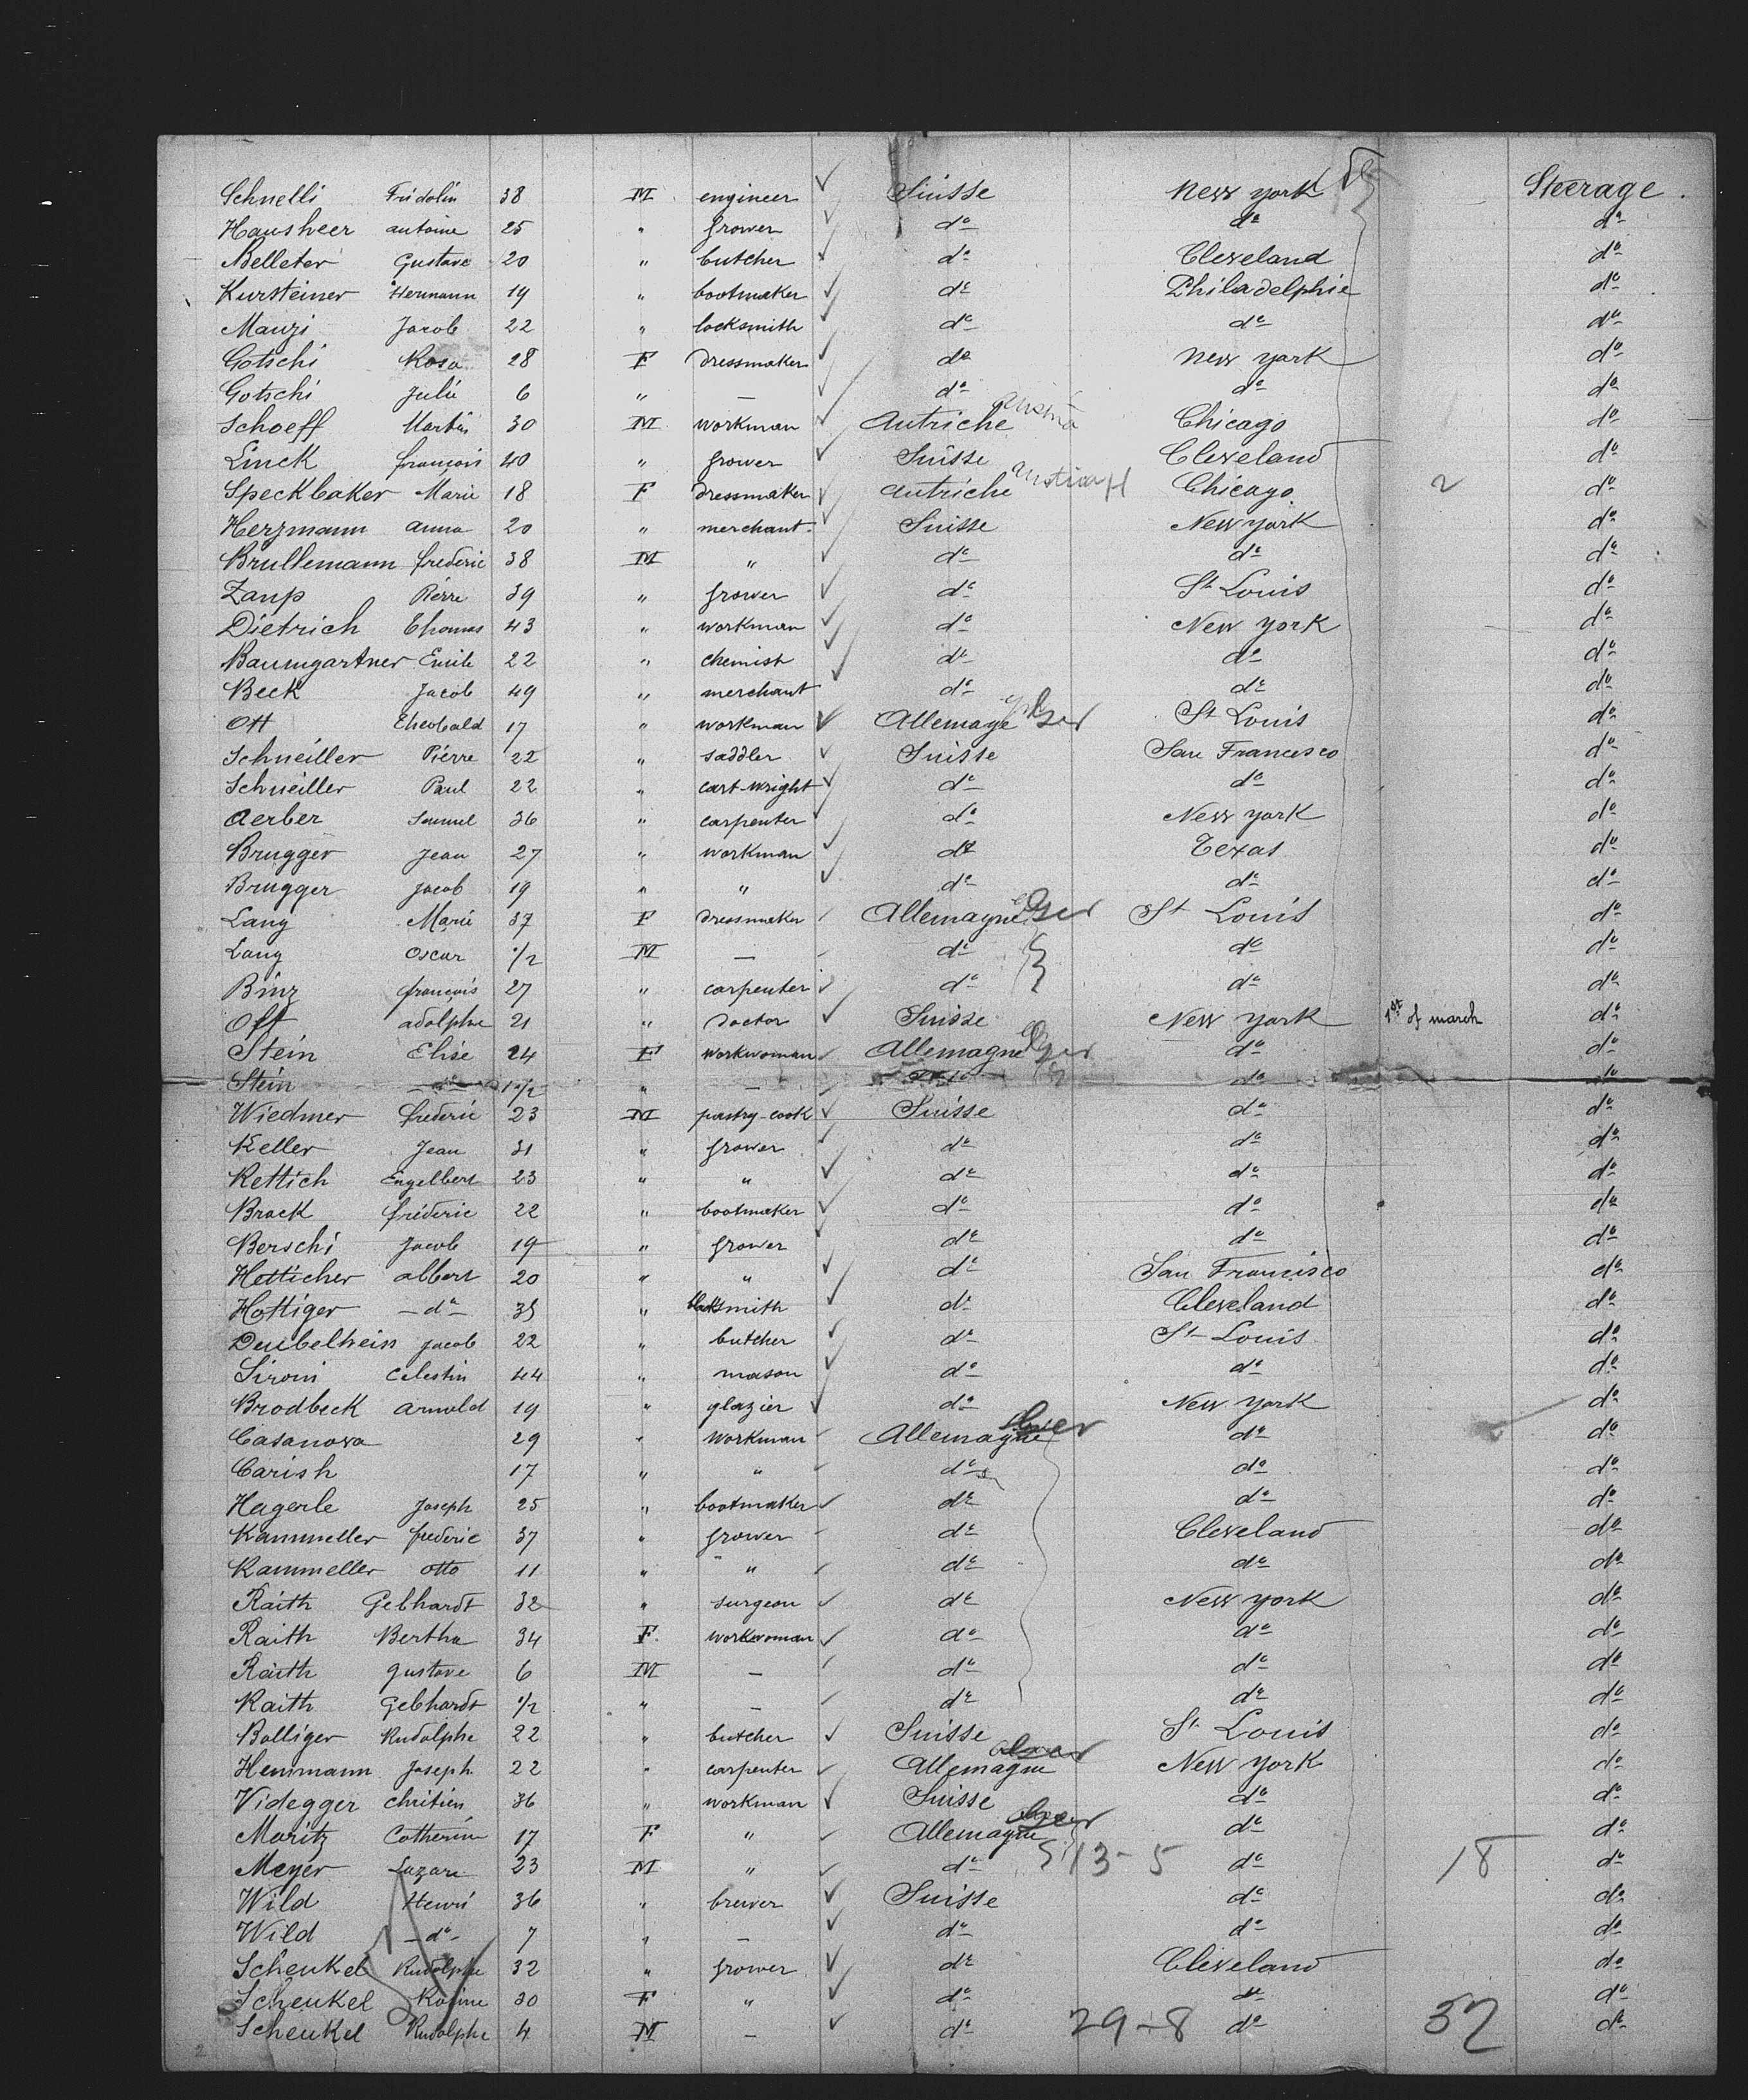 Schnelli Fridolin 38 M engineer Suisse New york Steerage.
Hausheer antoine 25 " grower do do do
Belleter Gustave 20 " butcher do Cleveland do
Kursteiner Hermann 19 " bootmaker do Philadelphie do
Manzi Jacob 22 " locksmith do do do
Gotschi Rosa 28 F dressmaker do New york do
Gotschi Julie 6 " — do do do
Schoeff Martin 30 M workman Autriche Austria Chicago do
Linck françois 40 " grower Suisse Cleveland do
Speckbaker Marie 18 F dressmaker autriche Chicago 2 do
Herzmann anna 20 " merchant Suisse New york do
Brullemann frederic 38 M " do do do
Zaup Pierre 39 " grower do St Louis do
Dietrich Thomas 43 " workman do New york do
Baumgartner Emile 22 " chemist do do do
Beck Jacob 49 " merchant do do do
Ott Theobald 17 " workman Allemage Ger St Louis do
Schneiller Pierre 22 " saddler Suisse San Francesco do
Schneiller Paul 22 " cart-wright do do do
Aerber Samuel 36 " carpenter do New york do
Brugger Jean 27 " workman do Texas do
Brugger Jacob 19 " " do do do
Lang Marie 37 F dressmaker Allemagne Ger St Louis do
Lang Oscar 1/2 M — do do do
Binz françois 27 " carpenter do do do
Ott adolphe 21 " doctor Suisse New york 1st of march do
Stein Elise 24 F workwoman Allemagne Ger do do
Stein do " — do do
Wiedmer frederic 23 M pastry-cook Suisse do do
Keller Jean 31 " grower do do do
Rettich Engelbert 23 " " do do do
Brack fréderic 22 " bootmaker do do do
Berschi Jacob 19 " grower do do do
Hetticher albert 20 " " do San Francisco do
Hottiger — do — 35 " blacksmith do Cleveland do
Deubelhein Jacob 22 " butcher do St Louis do
Sironi Celestin 44 " mason do do do
Brodbeck arnold 19 " glazier do New york do
Casanova 29 " workman Allemagne Ger do do
Carish 17 " " do do do
Hagerle Joseph 25 " bootmaker do do do
Kammeller frederic 37 " grower do Cleveland do
Kammeller otto 11 " " do do do
Raith Gebhardt 32 " surgeon do New york do
Raith Bertha 34 F workwoman do do do
Raith gustave 6 M — do do do
Raith Gebhardt 1/2 " — do do do
Bolliger Rudolphe 22 " butcher Suisse St Louis do
Hemmann Joseph 22 " carpenter Allemagne New York do
Videgger chretien 36 " workman Suisse do do
Maritz Catherine 17 F " Allemagne Ger do do
Meyer Lazare 23 M " do 13-5 do 18 do
Wild Henri 36 " brewer Suisse do do
Wild — do — 7 " — do do do
Schenkel Rudolphe 32 " grower do Cleveland do
Schenkel Rosine 30 F " do do do
Schenkel Rudolphe 4 M — do 29-8 do 32 do
2